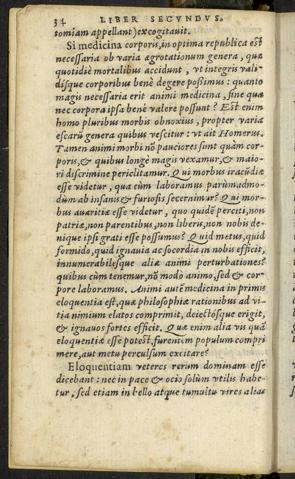 34 LIBER SECVNDVS.
tomiam appellant) excogitauit.
Si medicina corporis, in optima republica est
necessaria ob varia ægrotationum genera, quæ
quotidiè mortalibus accidunt, vt integris vali-
disque corporibus benè degere possimus: quanto
magis necessaria erit animi medicina, sine qua
nec corpora ipsa benè valere possunt? Est enim
homo pluribus morbis obnoxius, propter varia
escarū genera quibus vescitur: vt ait Homerus.
Tamen animi morbi nō pauciores sunt quàm cor-
poris, & quibus longè magis vexamur, & maio-
ri discrimine periclitamur. Qui morbus iracūdiæ
esse videtur, qua cùm laboramus parùm admo-
dùm ab insanis & furiosis secernimur? Qui mor-
bus auaritiæ esse videtur, quo quidē perciti, non
patriæ, non parentibus, non liberis, non nobis de-
nique ipsi grati esse possumus? Quid metus, quid
formido, quid ignauia ac socordia in nobis efficit,
innumerabilesque aliæ animi perturbationes?
quibus cùm tenemur, nō modo animo, sed & cor-
pore laboramus. Animi autē medicina in primis
eloquentia est, quæ philosophiæ rationibus ad vi-
tia nimium elatos comprimit, deiectósque erigit,
& ignauos fortes efficit. Quæ enim alia vis quā
eloquentiæ esse potest, furentem populum compri
mere, aut metu perculsum excitare?
Eloquentiam veteres rerum dominam esse
dicebant: nec in pace & ocio solùm vtilis habe-
tur, sed etiam in bello atque tumultu vires alias